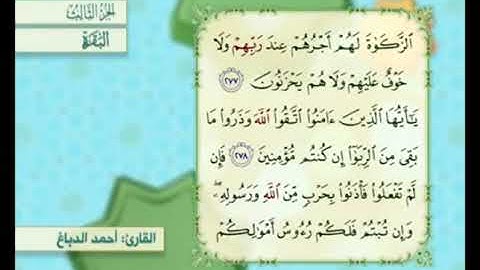 الجزء الثالث
البقرة
ٱلزَّكَوٰةَ لَهُمْ أَجْرُهُمْ عِندَ رَبِّهِمْ وَلَا
خَوْفٌ عَلَيْهِمْ وَلَا هُمْ يَحْزَنُونَ ٢٧٧
يَٰٓأَيُّهَا ٱلَّذِينَ ءَامَنُوا۟ ٱتَّقُوا۟ ٱللَّهَ وَذَرُوا۟ مَا
بَقِىَ مِنَ ٱلرِّبَوٰٓا۟ إِن كُنتُم مُّؤْمِنِينَ ٢٧٨ فَإِن
لَّمْ تَفْعَلُوا۟ فَأْذَنُوا۟ بِحَرْبٍ مِّنَ ٱللَّهِ وَرَسُولِهِۦ ۖ
وَإِن تُبْتُمْ فَلَكُمْ رُءُوسُ أَمْوَٰلِكُمْ
القارئ: أحمد الدباغ